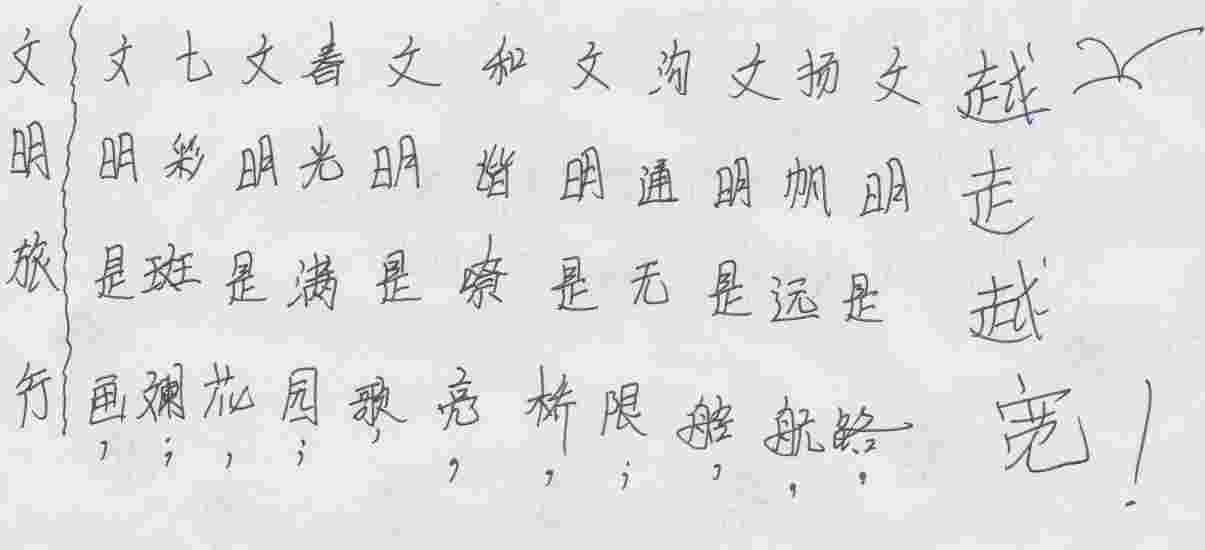 文明旅行
文明是画，
七彩斑斓；
文明是花，
春光满园；
文明是歌，
和谐嘹亮，
文明是桥，
沟通无限；
文明是船，
扬帆远航，
文明是路，
越走越宽！